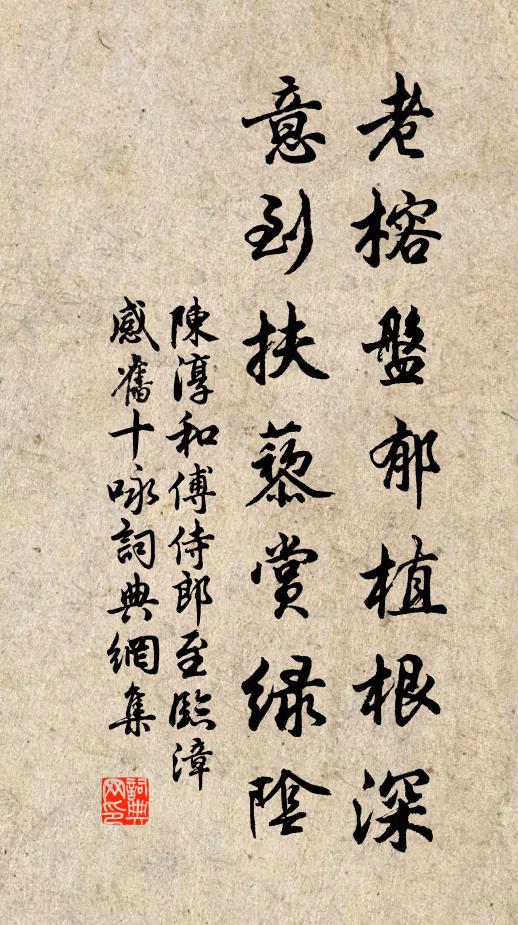 老榕盤郁植根深
意到扶藜賞綠陰
陳淳和傅侍郎至臨漳
感舊十咏詞典網集
詞典
网印